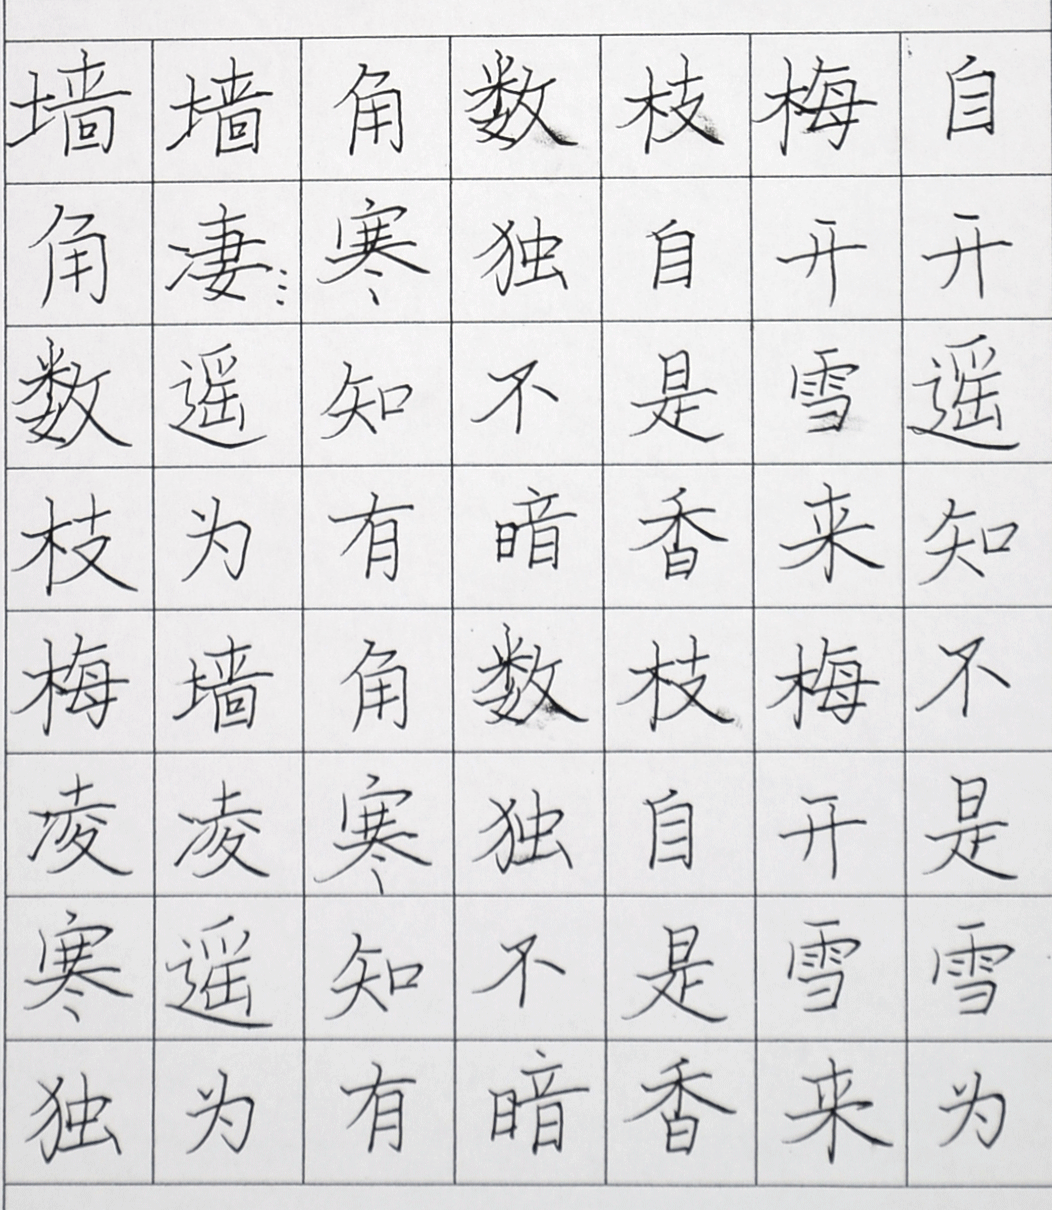 墙墙角数枝梅自
角凄寒独自开开
数遥知不是雪遥
枝为有暗香来知
梅墙角数枝梅不
凌凌寒独自开是
寒遥知不是雪雪
独为有暗香来为